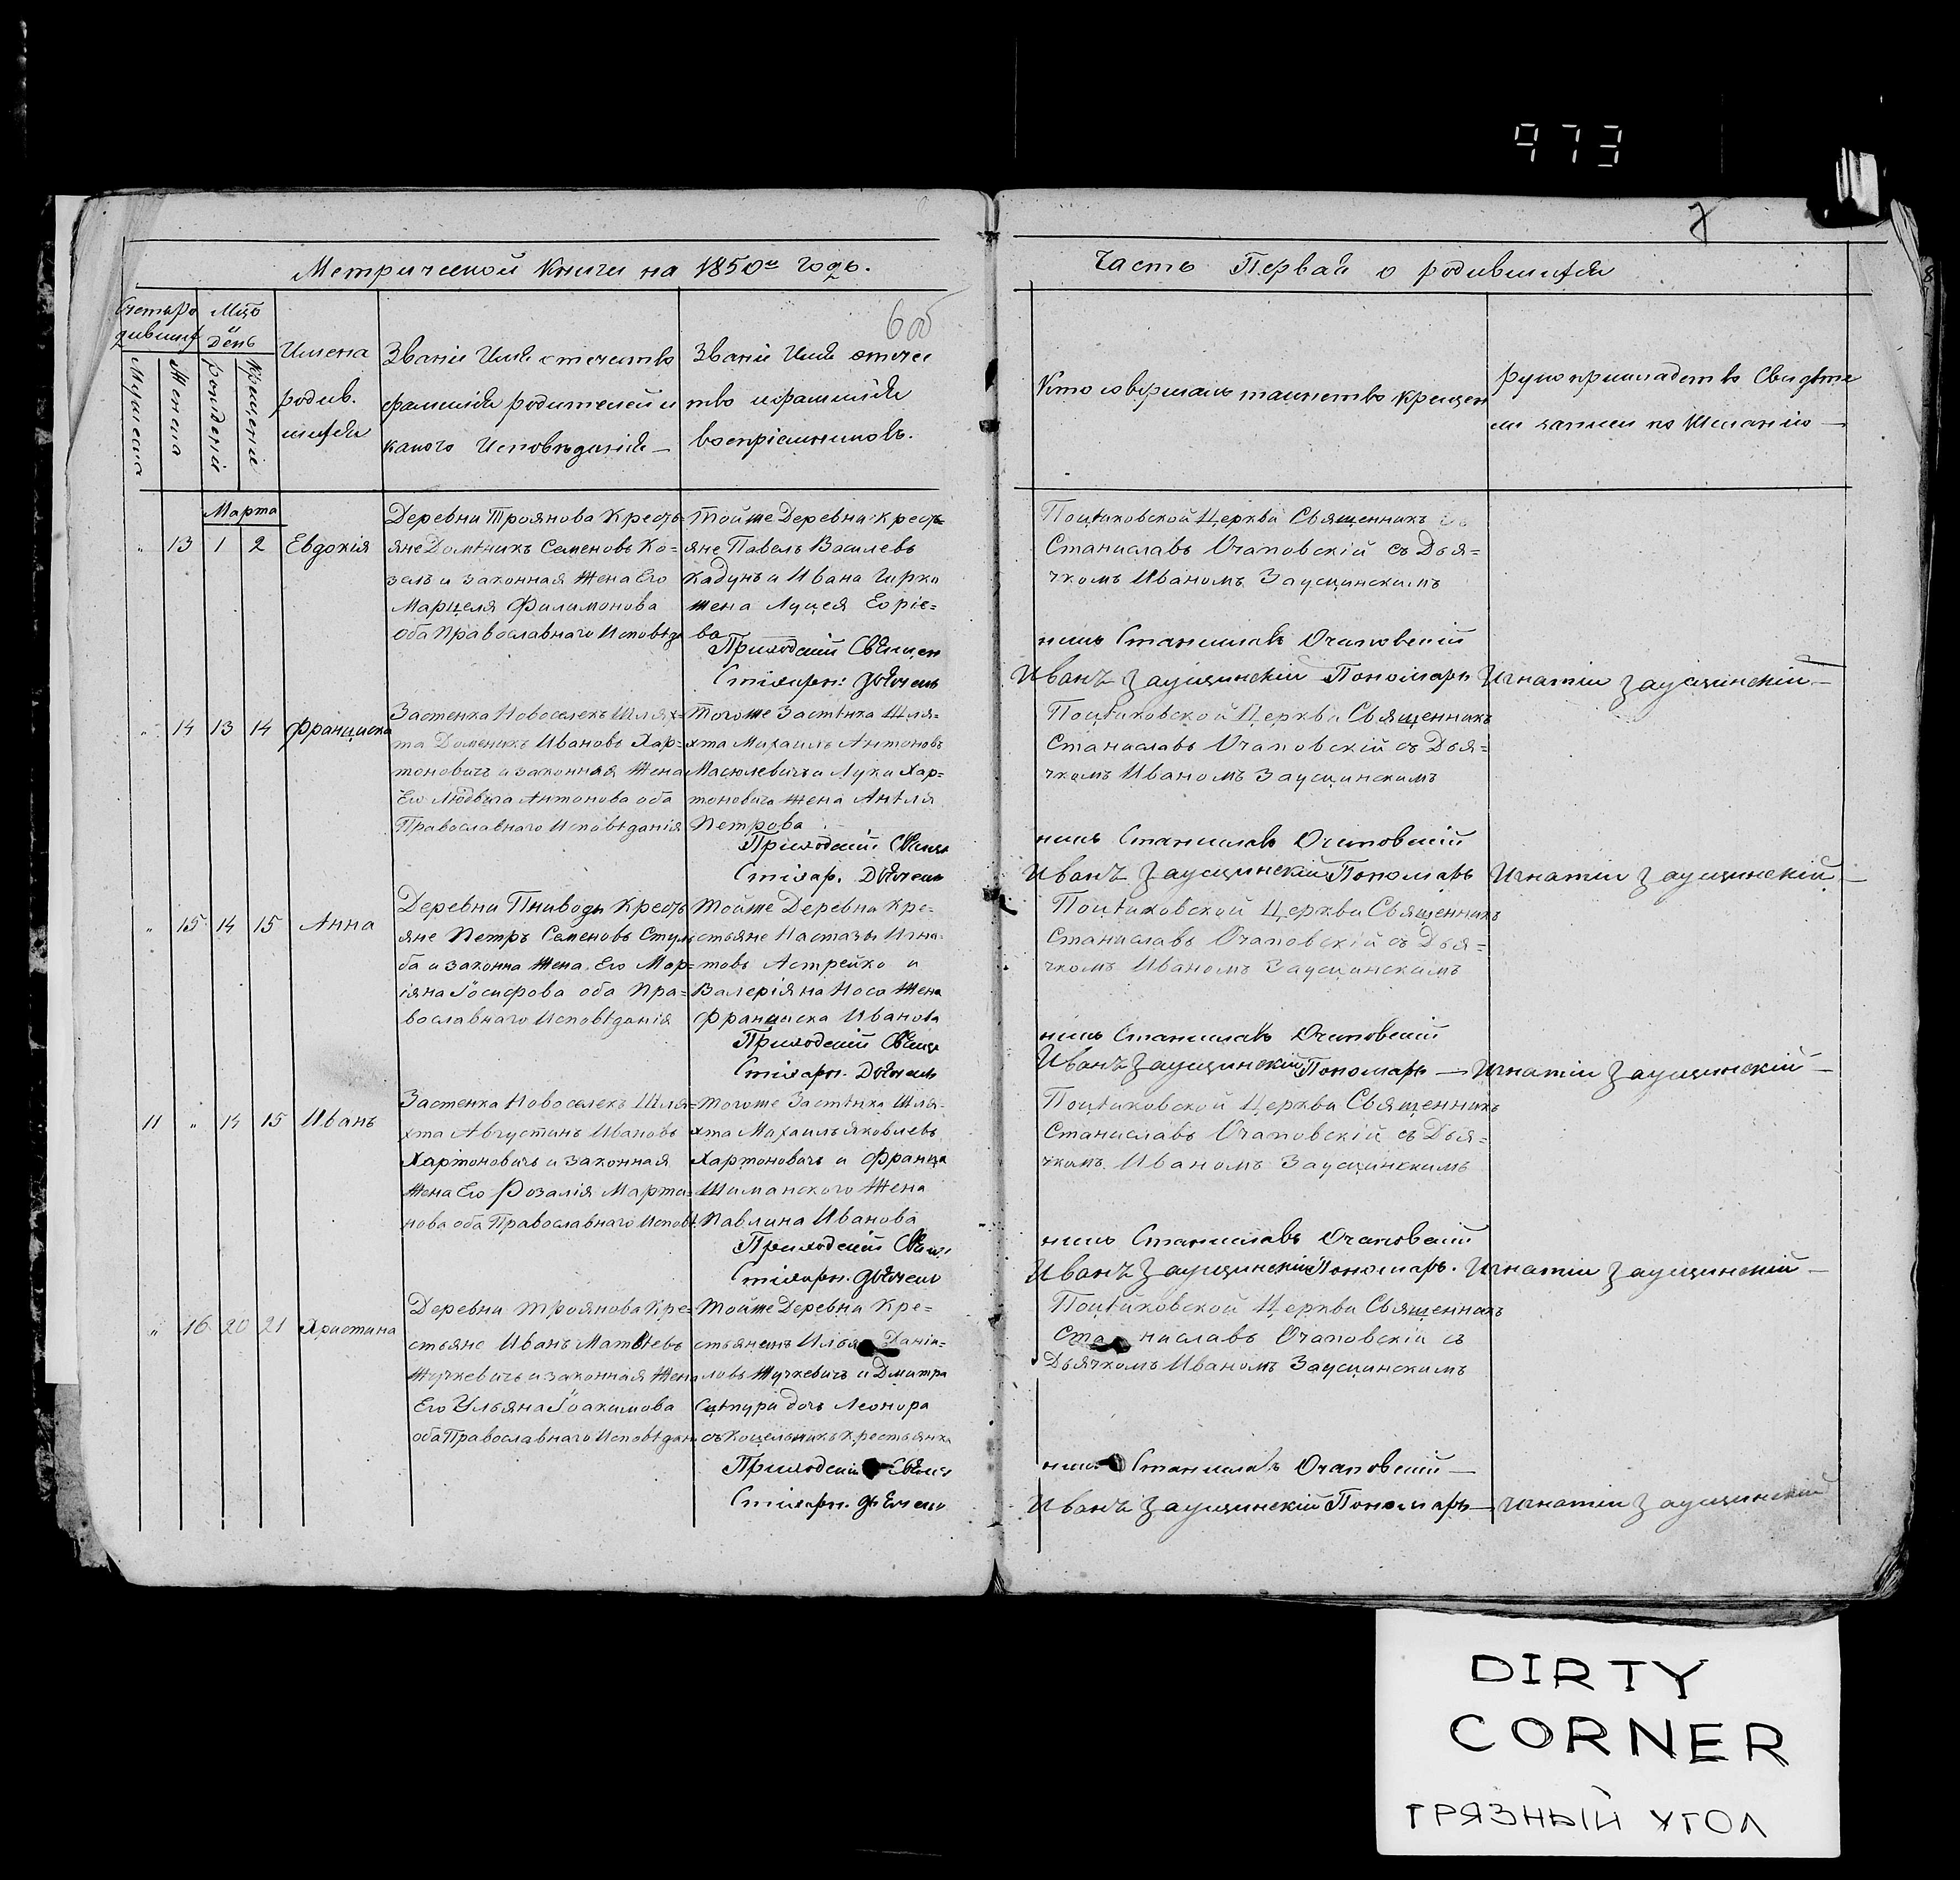 973
7
8
Метрической Книги на 1850й Годъ.
Часть Первая о родившихся
6об
Счетъ родившихся
Мужеска
Женска
Мцъ День
рожденія
крещенія
Имена
родив.
шихся
Званіе Имя отечество
фамилія родителей и
какого Исповѣданія —
Званіе Имя отечес
тво и фамилія
воспріемниковъ.
Кто совершалъ таинство крещен
рукоприкладство Свидѣте
ли записи по Желанію —
Марта
„ 13 1 2 Евдокія
Деревни Троянова Кресть-
яне Доменикъ Семеновъ Ко-
зелъ и законная Жена Его
Марцеля Филимонова
оба Православнаго Исповѣда
Тойже Деревни Кресть-
яне Павелъ Василевъ
Кадунъ и Ивана Чирко
жена Луцея Еоріе-
ва
Поцѣйковской Церкви Священникъ
Станиславъ Очаповскій съ Дья-
чкомъ Иваномъ Заусцинскимъ
Приходскій Священ
никъ Станиславъ Очаповскій
Стихарн: Дьячекъ
Иванъ Заусцинскій Пономарь Игнатій Заусцинскій —
„ 14 13 14 Франциска
Застенка Новоселекъ Шлях-
та Доменикъ Ивановъ Хар-
тоновичъ и законная Жена
Его Людвига Антонова оба
Православнаго Исповѣданія
Тогоже Застѣнка Шля-
хта Михаилъ Антоновъ
Масюлевичъ и Луки Хар-
тоновича Жена Анѣля
Петрова
Поцѣйковской Церкви Священникъ
Станиславъ Очаповскій съ Дья-
чкомъ Иваномъ Заусцинскимъ
Приходскій Свяще
никъ Станиславъ Очаповскій
Стихар. Дьячекъ
Иванъ Заусцинскій Пономарь Игнатій Заусцинскій —
„ 15 14 15 Анна
Деревни Пниводы Кресть
яне Петръ Семеновъ Стуль
ба и законна Жена Его Мар-
іяна Іосифова оба Пра-
вославнаго Исповѣданія
Тойже Деревни Кре-
стьяне Настазы Игна-
товъ Астрейко и
Валеріяна Носа Жена
Франциска Иванова
Поцѣйковской Церкви Священникъ
Станиславъ Очаповскій съ Дья-
чкомъ Иваномъ Заусцинскимъ
Приходскій Свяще
никъ Станиславъ Очаповскій
Стихарн. Дьячекъ
Иванъ Заусцинскій Пономарь — Игнатій Заусцинскій —
11 „ 14 15 Иванъ
Застенка Новоселекъ Шля-
хта Августинъ Ивановъ
Хартоновичъ и законная
Жена Его Розалія Марти-
нова оба Православнаго Исповѣ
Тогоже Застѣнка Шля-
хта Михаилъ Яковлевъ
Хартоновичъ и Франца
Шиманского Жена
Павлина Иванова
Поцѣйковской Церкви Священникъ
Станиславъ Очаповскій съ Дья-
чкомъ Иваномъ Заусцинскимъ
Приходскій Свящ.
никъ Станиславъ Очаповскій
Стихарн. Дьячекъ
Иванъ Заусцинскій Пономарь. Игнатій Заусцинскій —
„ 16 20 21 Христина
Деревни Троянова Кре-
стьяне Иванъ Матвѣевъ
Жучкевичъ и законная Жена
Его Ульяна Іоакимова
оба Православнаго Исповѣдан
Тойже Деревни Кре-
стьянинъ Илья Даніи-
ловъ Жучкевичъ и Дмитра
дочь Леонора
Крестьянка
Поцѣйковской Церкви Священникъ
Станиславъ Очаповскій съ
Дьячкомъ Иваномъ Заусцинскимъ
Приходскій Свяще
никъ Станиславъ Очаповскій —
Стихарн. Дьячекъ
Иванъ Заусцинскій Пономарь — Игнатій Заусцинскій
DIRTY
CORNER
ГРЯЗНЫЙ УГОЛ